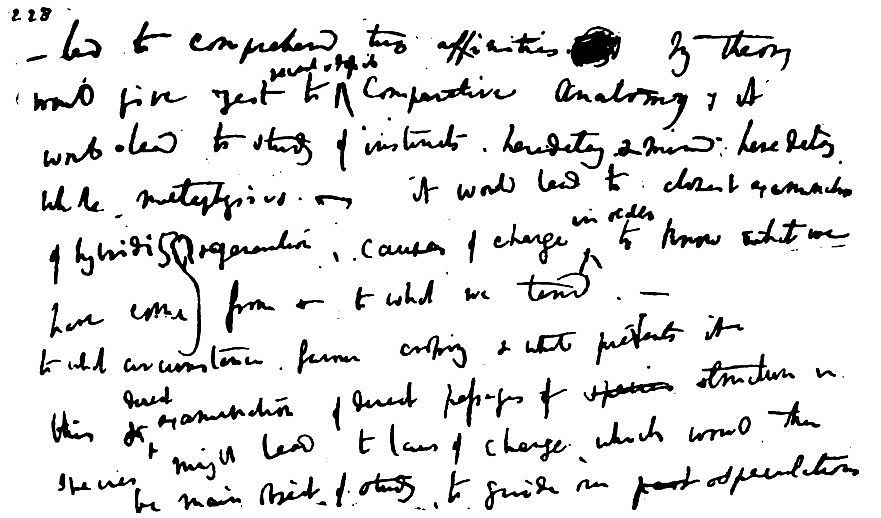 228
– led to comprehend true affinities. My theory
would give zest to recent & fossil Comparative Anatomy, & it
would lead to study of instincts. hereditary & mind hereditary
whole metaphysics. — it would lead to closest examination
of hybridity regeneration, causes of change in order to know what we
have come from & to what we tend. —
to what circumstances favour crossing & what prevents it —
this & direct examination of direct passages of species structure in
species might lead to laws of change, which would then
be main object of study, to guide our past speculations